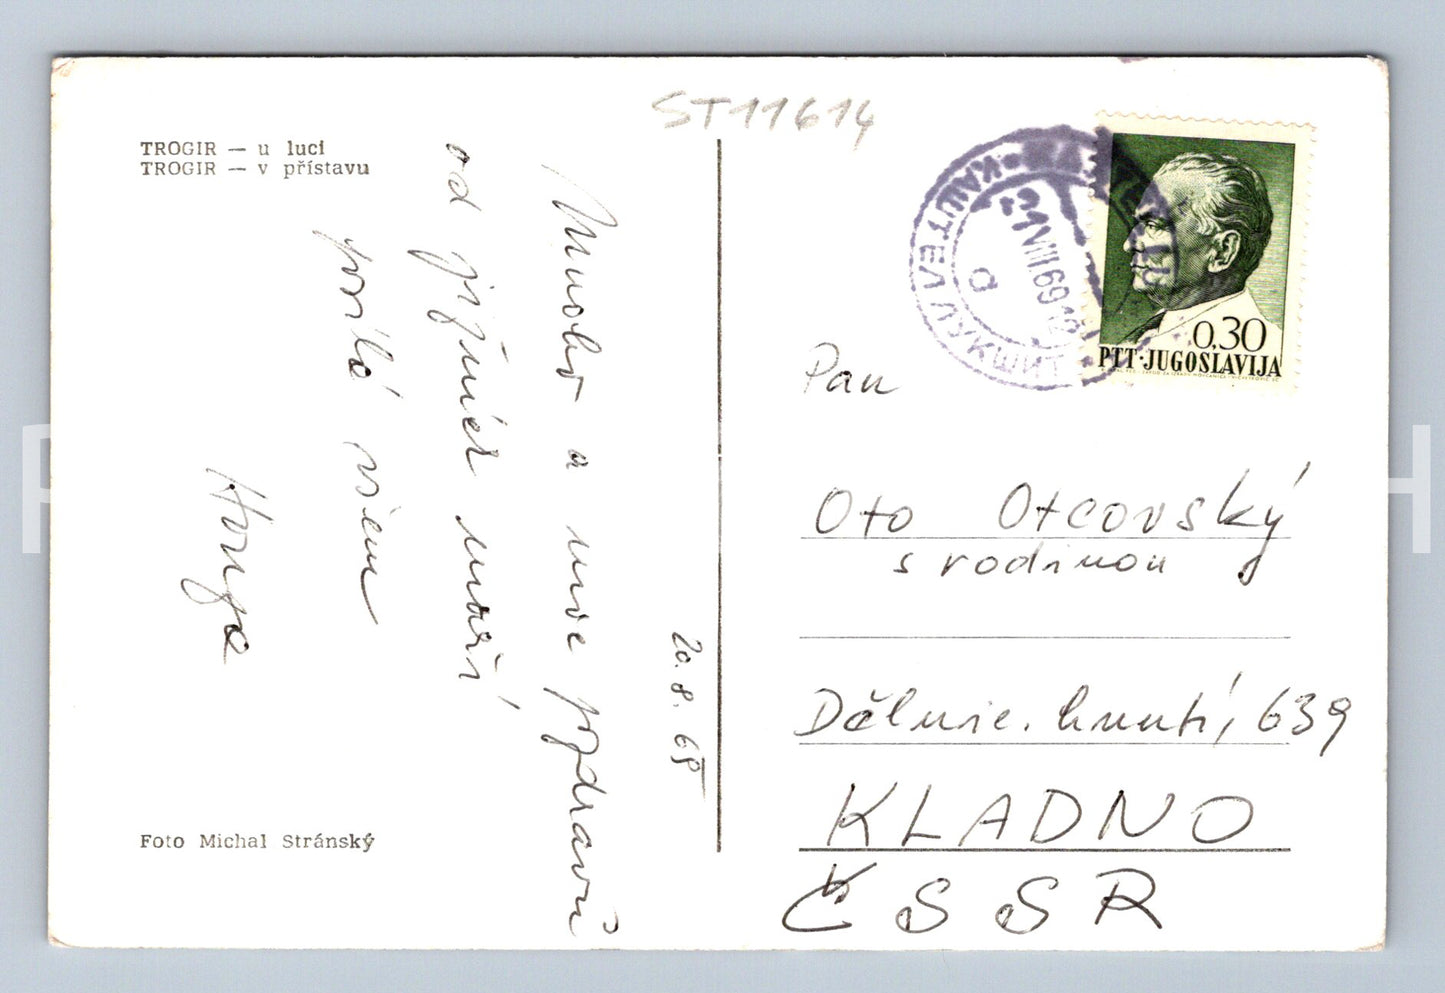 ST11614
TROGIR — u luci
TROGIR — v přístavu
Mnoho a moc pozdravů
od jižního moře
posílá všem
Honza
20. 8. 69
Foto Michal Stránský
КАШТЕЛ ЛУКШИЋ
21 VIII 69
a
0,30
PTT·JUGOSLAVIJA
Pan
Oto Otcovský
s rodinou
Dělnic. hnutí, 639
KLADNO
ČSSR